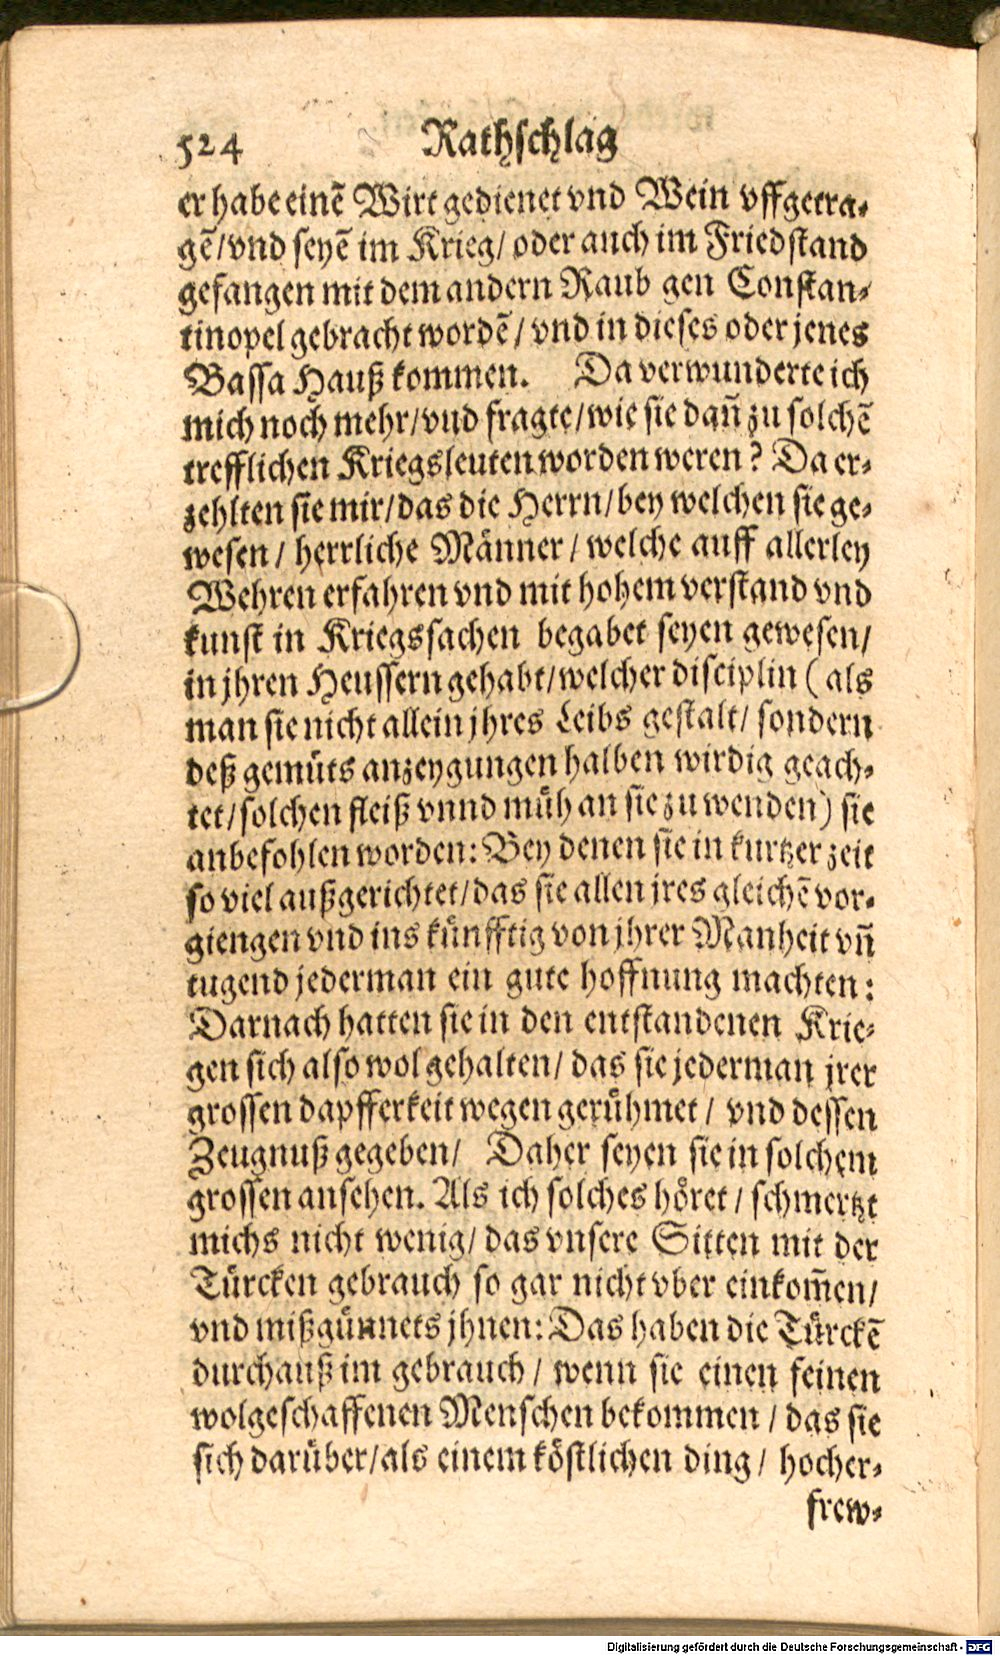 524 Rathschlag
er habe einē Wirt gedienet vnd Wein vffgetra-
gē/vnd seyē im Krieg/oder auch im Friedstand
gefangen mit dem andern Raub gen Constan-
tinopel gebracht wordē/vnd in dieses oder jenes
Bassa Hauß kommen. Da verwunderte ich
mich noch mehr/vud fragte/wie sie dañ zu solchē
trefflichen Kriegsleuten worden weren? Da er-
zehlten sie mir/das die Herrn/bey welchen sie ge-
wesen/ herrliche Männer/welche auff allerley
Wehren erfahren vnd mit hohem verstand vnd
kunst in Kriegssachen begabet seyen gewesen/
in jhren Heussern gehabt/welcher disciplin (als
man sie nicht allein jhres Leibs gestalt/ sondern
deß gemüts anzeygungen halben wirdig geach-
tet/solchen fleiß vnnd müh an sie zu wenden) sie
anbefohlen worden: Bey denen sie in kurtzer zeit
so viel außgerichtet/das sie allen jres gleichē vor-
giengen vnd ins künfftig von jhrer Manheit vñ
tugend jederman ein gute hoffnung machten:
Darnach hatten sie in den entstandenen Krie-
gen sich also wol gehalten/ das sie jederman jrer
grossen dapfferkeit wegen gerühmet/ vnd dessen
Zeugnuß gegeben/ Daher seyen sie in solchem
grossen ansehen. Als ich solches höret/ schmertzt
michs nicht wenig/ das vnsere Sitten mit der
Türcken gebrauch so gar nicht vber einkom̃en/
vnd mißgünnets jhnen: Das haben die Türckē
durchauß im gebrauch/ wenn sie einen feinen
wolgeschaffenen Menschen bekommen/ das sie
sich darüber/als einem köstlichen ding/ hocher-
frew-
Digitalisierung gefördert durch die Deutsche Forschungsgemeinschaft - DFG